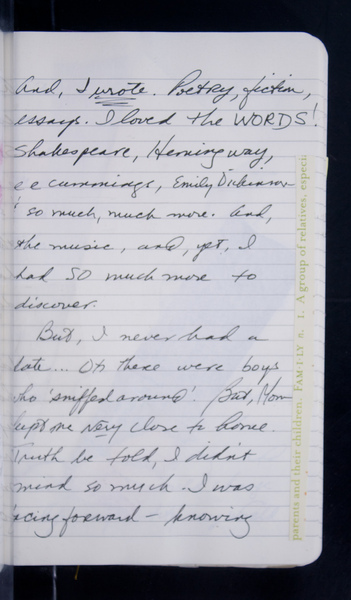 And, I wrote. Poetry, fiction,
essays. I loved the WORDS!
Shakespeare, Hemingway,
e e cummings, Emily Dickinson
so much, much more. And,
the music, and, yet, I
had SO much more to
discover.
But, I never had a
date... Oh there were boys
who 'sniffed around'. But, Mom
kept me very close to home.
Truth be told, I didn't
mind so much. I was
facing forward - knowing
parents and their children. FAM·I·LY n. 1. A group of relatives, especi